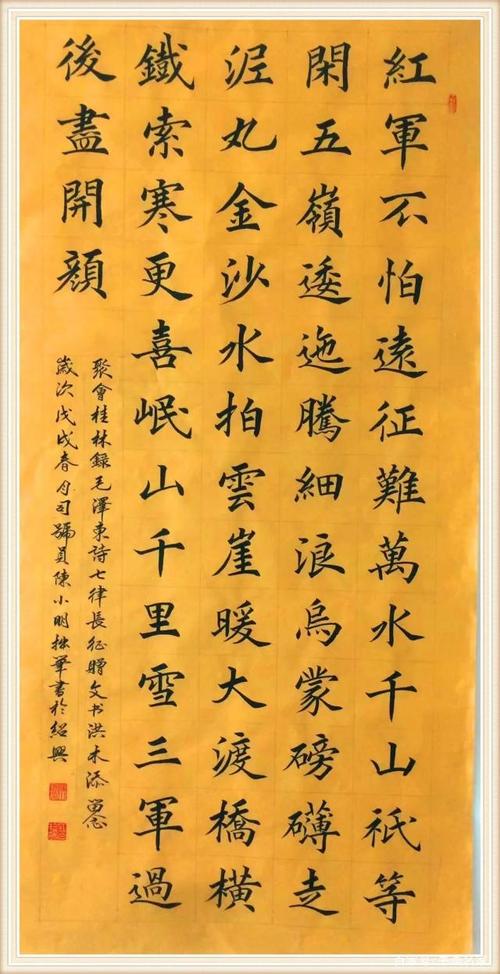 紅軍不怕遠征難萬水千山祇等
閑五嶺逶迤騰細浪烏蒙磅礴走
泥丸金沙水拍雲崖暖大渡橋橫
鐵索寒更喜岷山千里雪三軍過
後盡開顏
聚會桂林録毛澤東詩七律長征贈文书洪木添留念
歲次戊戌春月司號員陳小明拙筆書於紹興